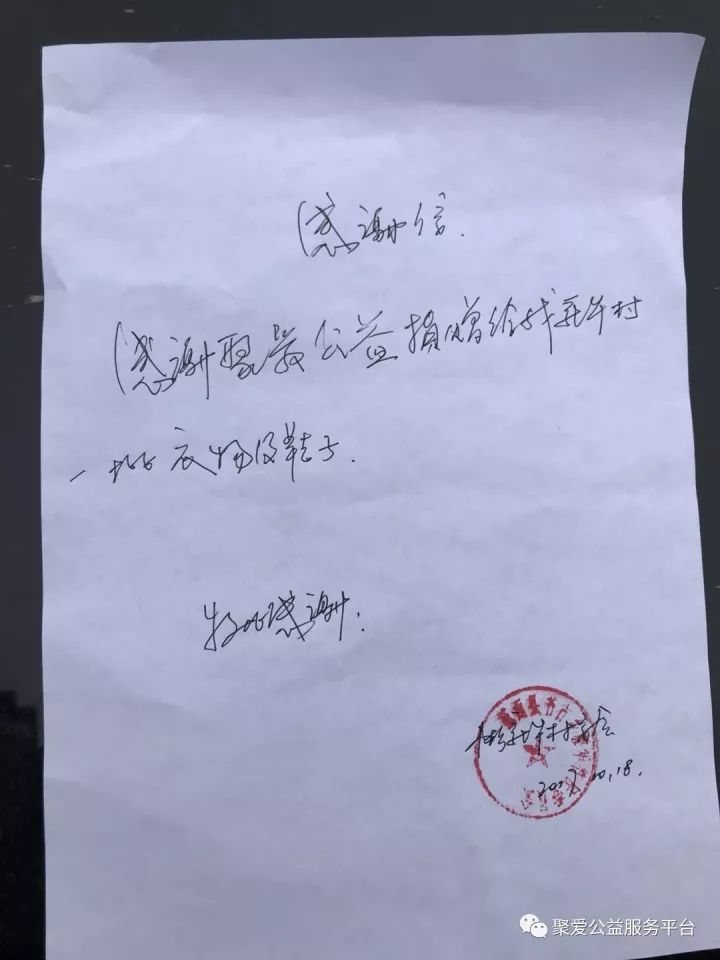 感谢信.
感谢聚爱公益捐赠给我新华村
一批衣物及鞋子.
特此感谢.
2017.10.18.
聚爱公益服务平台